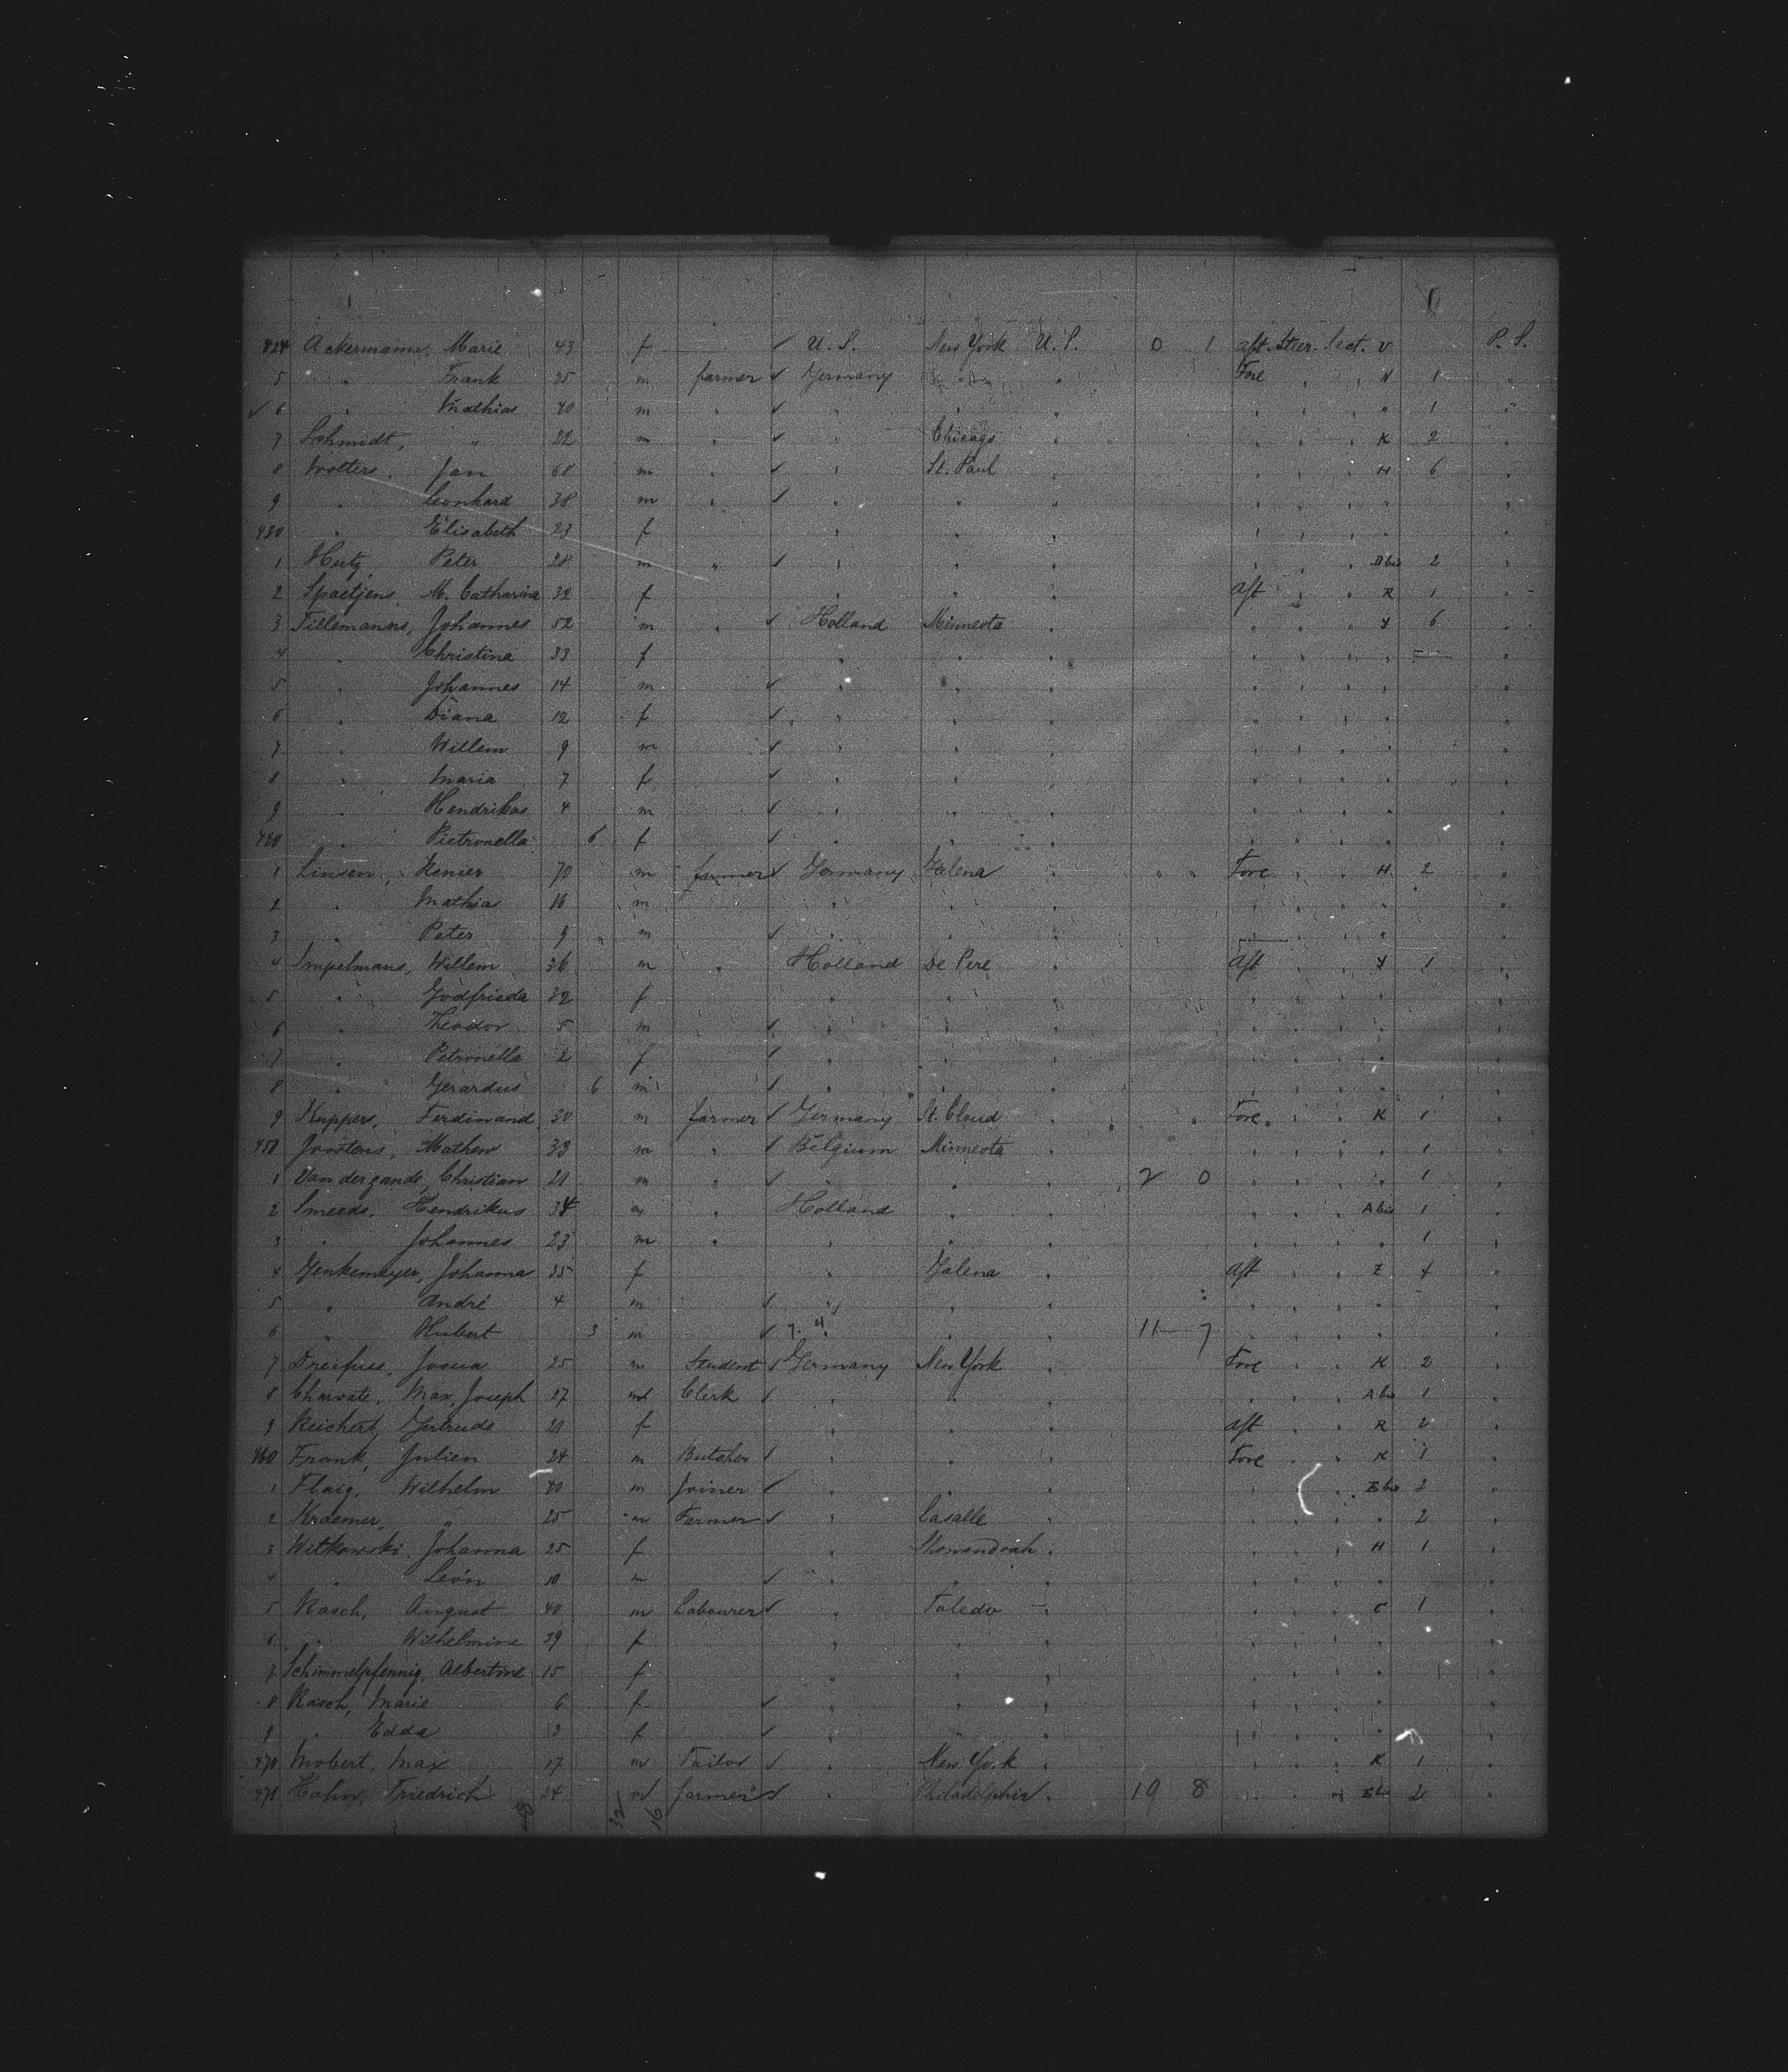 424 Ackermann, Marie 43 f ✓ U. S. New York U. S. 0 1 Aft. Steer. Sect. V P. S.
5 " Frank 25 m farmer ✓ Germany " Fore " " N 1
✓ 6 " Mathias 40 m ✓ " " " " " " " 1 "
7 Schmidt, " 22 m " ✓ " Chicago " " " " K 2
8 Wolters, Jan 68 m " ✓ " St. Paul " " " " H 6
9 " Leonhard 38 m " ✓ " " " " " " "
430 " Elisabeth 23 f " " " " " " "
1 Hutz, Peter 28 m " ✓ " " " " " " D bis 2 "
2 Spaetjens, M. Catharina 32 f " " " Aft " " R 1 "
3 Tillemanns, Johannes 52 m " ✓ Holland Minneota " " " " Y 6 "
4 " Christina 33 f " " " " " " " "
5 " Johannes 14 m ✓ " " " " " " " "
6 " Diana 12 f ✓ " " " " " " " "
7 " Willem 9 m ✓ " " " " " " " "
8 " Maria 7 f ✓ " " " " " " " "
9 " Hendrikus 4 m ✓ " " " " " " " "
440 " Pietronella 6 f ✓ " " " " " " " "
1 Linsen, Renier 70 m farmer ✓ Germany Galena " " " Fore " " H 2 "
2 " Mathia 16 m " " " " " " " "
3 " Peter 9 m ✓ " " " " " "
4 Smpelmans, Willem 36 m " Holland De Pere " Aft " " Y 1 "
5 " Godfrieda 32 f " " " " " " " "
6 " Theodor 5 m ✓ " " " " " " " "
7 " Petronella 2 f ✓ " " " " " " " "
8 " Gerardus 6 m ✓ " " " " " " " "
9 Kuppers, Ferdinand 30 m farmer ✓ Germany St. Cloud " " Fore " " K 1 "
450 Joostens, Mathew 33 m " ✓ Belgium Minneota " " " " " 1 "
1 Van der zande, Christian 21 m " ✓ " " " 2 0 " " " " 1 "
2 Smeeds, Hendrikus 34 m " Holland " " " " " A bis 1 "
3 " Johannes 23 m " " " " " " " " 1 "
4 Genkemeyer, Johanna 35 f " Galena " Aft " " Z 4 "
5 " André 4 m ✓ " " " " " " " "
6 " Hubert 3 m ✓ " " " 11 7 " " " " "
7 Dreifus, Josua 25 m Student ✓ Germany New York " Fore " " K 2 "
8 Charvate, Max, Joseph 17 m Clerk ✓ " " " " " " A bis 1 "
9 Reichert, Gertrude 21 f " " " Aft " " R 2 "
460 Frank, Julien 24 m Butcher ✓ " " " Fore " " K 1 "
1 Flaig, Wilhelm 40 m Joiner ✓ " " " " " " E bis 2 "
2 Kraemer, " 25 m Farmer ✓ " Lasalle " " " " " 2 "
3 Witkowski, Johanna 25 f " Shenandoah " " " " H 1 "
4 " León 10 m ✓ " " " " " " " "
5 Rasch, August 40 m Labourer ✓ " Toledo " " " " C 1 "
6 " Wilhelmine 39 f " " " " " " " "
7 Schimmelpfennig, Albertine 15 f " " " " " " " "
8 Rasch, Marie 6 f ✓ " " " " " " " "
9 " Edda 3 f ✓ " " " " " " " "
470 Mobert, Max 17 m Tailor ✓ " New York " " " " K 1 "
471 Hahn, Friedrich 24 m farmer ✓ " Philadelphia " 19 8 " " " E bis 2 "
32 16